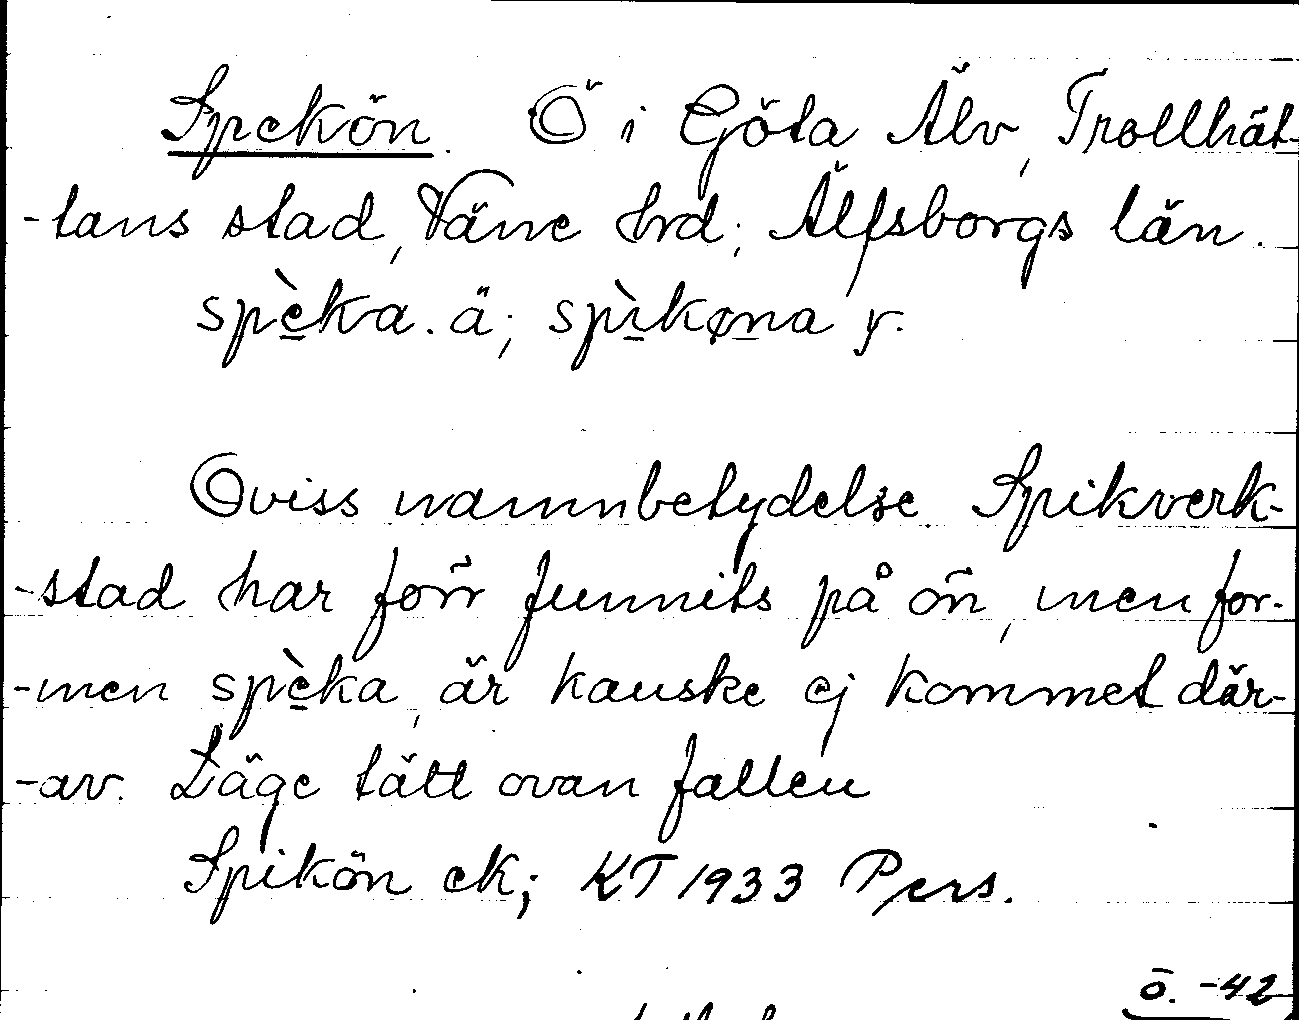 Spekön. Ö i Göta Älv, Trollhät-
-tans stad, Väne hrd; Älfsborgs län.
spè̱ka. ä; spì̱køna y.
Oviss namnbetydelse. Spikverk-
-stad har förr funnits på ön, men for-
-men spè̱ka, är kanske ej kommet där-
-av. Läge tätt ovan fallen
Spikön ek; KT 1933 Pers.
ö. -42